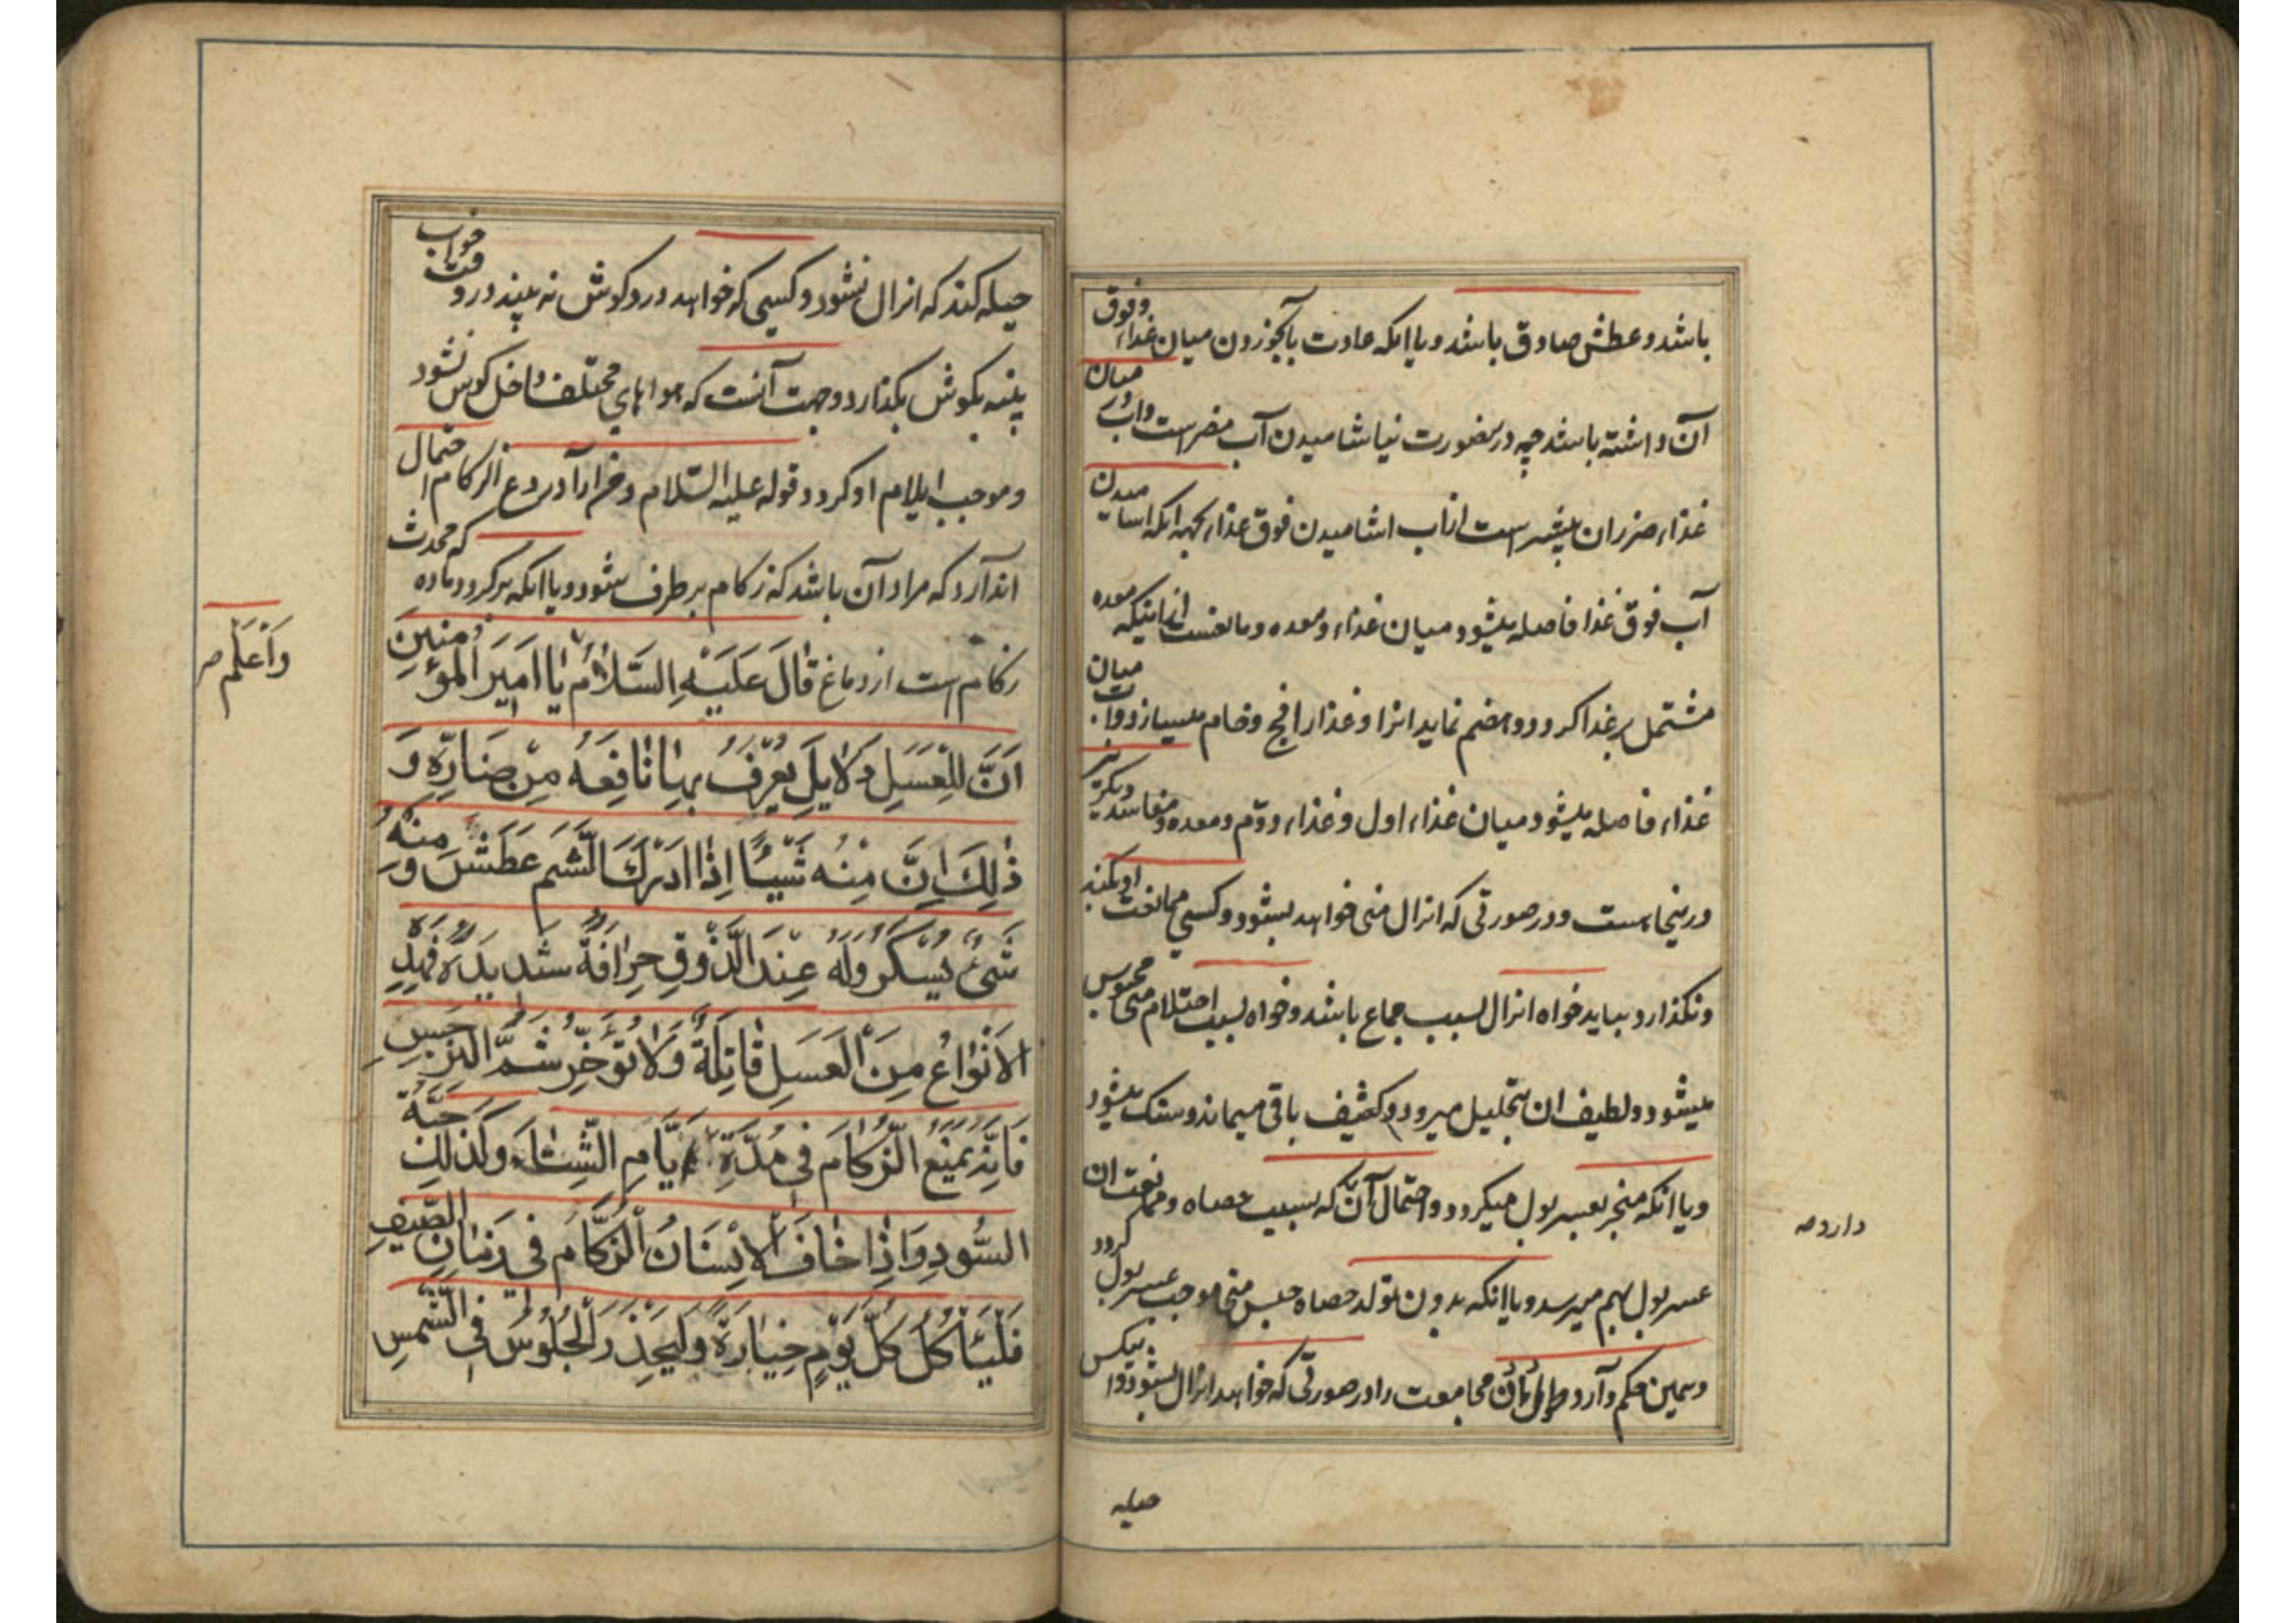 باشد و عطش صادق باشد و یا انکه عادت بآبخوردن میان غذاء و فوق
آن داشته باشد چه درینصورت نیاشامیدن آب مضر است و اب در میان
غذاء ضرر ان بیشتر است از اب اشامیدن فوق غذاء بجهه انکه اشامیدن
آب فوق غذا فاصله میشود میان غذاء و معده و مانعست از اینکه معده
مشتمل بر غذا کردد و هضم نماید انرا و غذا را فج و خام میسازد و اب میان
غذاء فاصله میشود میان غذاء اول و غذاء دوم و معده و مفاسد دیکر نیز
درینجا هست و در صورتی که انزال منی خواهد بشود و کسی ممانعت او بکند
و نکذارد بیاید خواه انزال بسبب جماع باشد و خواه بسبب احتلام منی محبوس
میشود و لطیف ان بتحلیل میرود و کثیف باقی میماند و سنک میشود
و یا انکه منجر بعسر بول میکردد و احتمال آن که بسبب حصاه و ممانعت ان
عسر بول بهم میرسد و یا اینکه بدون تولد حصاه حبس منی موجب عسر بول کردد
و همین حکم دآرد طول دادن مجامعت را در صورتی که خواهد انزال بشود و
دارد صه
حیله
حیله کند که انزال نشود و کسی که خواهد درد کوش نه بیند در وقت خواب
پنبه بکوش بکذارد و جهت آنست که هواهای مختلف داخل کوش نشود
و موجب ایلام او کردد و قوله علیه السّلام
اندآرد که مراد آن باشد که زکام بر طرف شود و یا انکه برکردد ماده که محدث
زکام است از دماغ قٰالَ عَلَیْهِ السَّلاٰمُ یٰا اَمیرَ الْمُؤْمِنینَ
اَنَّ لِلْعَسَلِ دَلاٰیلَ یُعْرَفُ بِهٰا نٰافِعَهُ مِنْ ضٰارِّهِ وَ
ذٰلِکَ اِنَّ مِنْهُ شَیْئًا اِذٰا اَدْرَکَ الشَّم عَطَشَ وَ مِنْهُ
شَیْءٌ یُسْکِرُ وَلَهُ عِنْدَ الذَّوْقِ حِرٰافَةٌ شَدیدَةٌ فَهٰذِهِ
الْاَنْوٰاعُ مِنَ الْعَسَلِ قٰاتِلَةٌ وَلاٰ تُؤَخِّرْ شَمَّ النَّرْجِسِ
فَاِنَّهُ یَمْنَعُ الزُّکٰامَ فی مُدَّةِ اَیّٰامِ الشِّتٰاءِ وَکَذٰلِکَ حَبَّةُ
السُّودِ وَ اِذٰا خٰافَ الْاِنْسٰانُ الزُّکٰامَ فی زَمٰانِ الصَّیْفِ
فَلْیَأْکُلْ کُلَّ یَوْمٍ خِیٰارَةً وَلْیَحْذَرِ الْجُلُوسَ فِی الشَّمْسِ
وَاَعْلَم صر